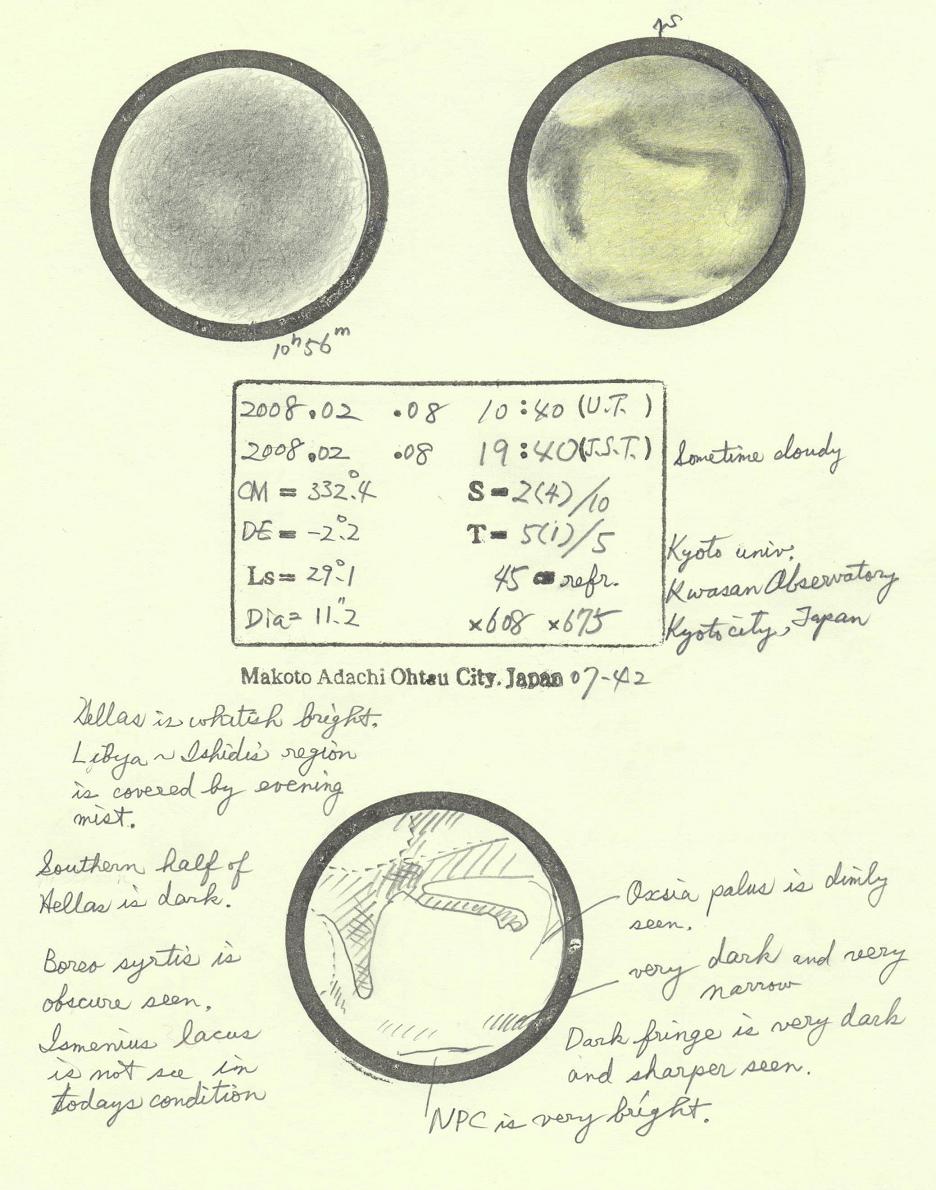 ps
10h56m
2008.02 .08 10:40 (U.T. )
2008.02 .08 19:40(J.S.T.)
CM = 332.°4 S = 2(4)/10
DE = -2.°2 T = 5(1)/5
Ls = 29.°1 45 refr.
Dia= 11."2 ×608 ×675
Sometime cloudy
Kyoto univ.
Kwasan Observatory
Kyoto city, Japan
Makoto Adachi Ohtsu City. Japan 07-42
Hellas is whitish bright.
Libya ~ Ishidis region
is covered by evening
mist.
Southern half of
Hellas is dark.
Boreo syrtis is
obscure seen.
Ismenius lacus
is not see in
todays condition
Oxsia palus is dimly
seen.
very dark and very
narrow
Dark fringe is very dark
and sharper seen.
NPC is very bright.